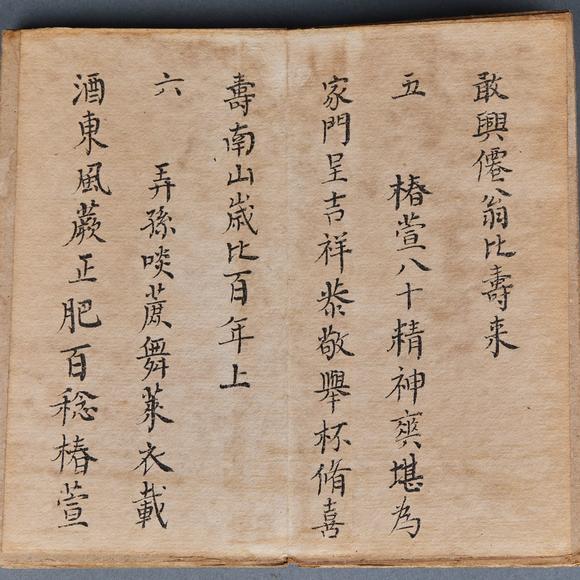 敢興僊翁比壽来
五 椿萱八十精神爽堪為
家門呈吉祥恭敬舉杯脩喜
壽南山歲比百年上
六 弄孫啖蔗舞萊衣載
酒東風蕨正肥百稔椿萱